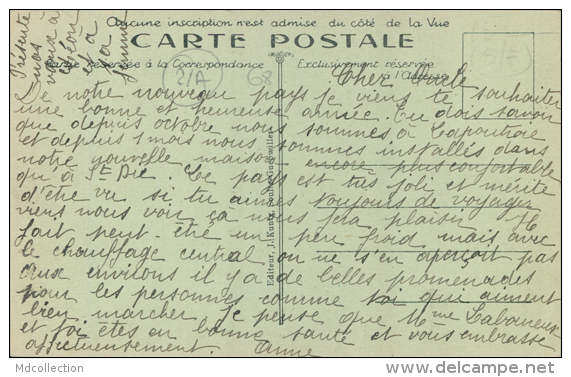 Aucune inscription n'est admise du côté de la Vue
CARTE POSTALE
Partie Réservée à la Correspondance
Exclusivement réservée
à l'Adresse
2/A
68
Présente
nos
vœux à
Léon
et à
Jeanne
Editeur, J. Kuntz, Soultz-Guebwiller
Cher Oncle
De notre nouveau pays je viens te souhaiter
une bonne et heureuse année. Tu dois savoir
que depuis octobre nous sommes à Lapoutroie
et depuis 1 mois nous sommes installés dans
notre nouvelle maison encore plus confortable
qu'à St Dié. Le pays est très joli et mérite
d'être vu si tu aimes toujours de voyager
viens nous voir ça nous fera plaisir. Il
fait peut-être un peu froid mais avec
le chauffage central on ne s'en aperçoit pas
aux environs il y a de belles promenades
pour les personnes comme toi qui aiment
bien marcher. Je pense que Mme
et toi êtes en bonne santé et vous embrasse
affectueusement. Anne
MDcollection
www.delcampe.net